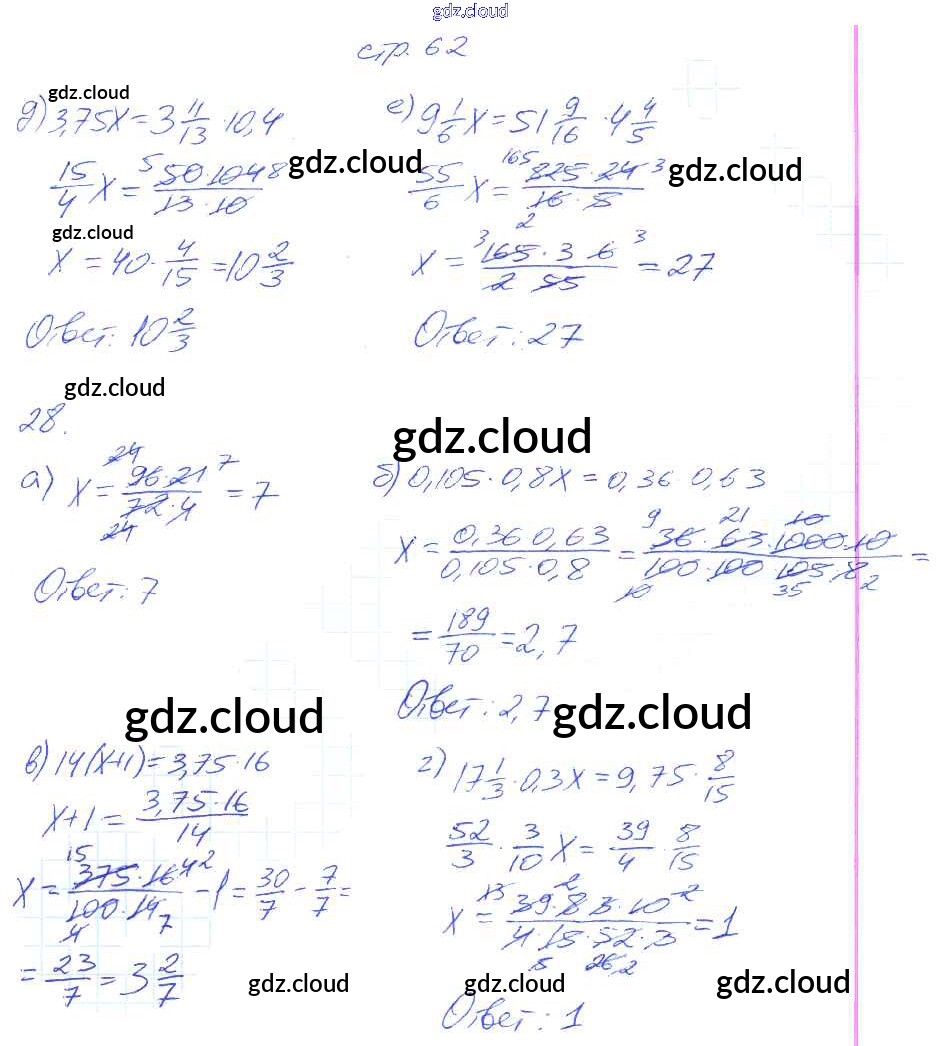 gdz.cloud
стр. 62
gdz.cloud
д) 3,75x = 3 11/13 · 10,4
15/4 x = 50 · 104 / 13 · 10 5 8
gdz.cloud
gdz.cloud
x = 40 · 4/15 = 10 2/3
Ответ: 10 2/3
е) 9 1/6 x = 51 9/16 · 4 4/5
55/6 x = 825 · 24 / 16 · 5 165 3 2
gdz.cloud
x = 165 · 3 6 / 2 55 3 3 = 27
Ответ: 27
gdz.cloud
28.
gdz.cloud
а) x = 96 · 21 / 72 · 4 24 7 24 = 7
Ответ: 7
б) 0,105 · 0,8x = 0,36 · 0,63
x = 0,36 0,63 / 0,105 · 0,8 = 36 · 63 · 1000 · 10 / 100 · 100 · 105 · 8 9 21 10 10 35 2 =
= 189/70 = 2,7
Ответ: 2,7
gdz.cloud
gdz.cloud
в) 14(x+1) = 3,75 · 16
x+1 = 3,75 · 16 / 14
x = 375 · 16 / 100 · 14 15 4 2 4 7 - 1 = 30/7 - 7/7 =
= 23/7 = 3 2/7
gdz.cloud
г) 17 1/3 · 0,3x = 9,75 · 8/15
52/3 · 3/10 x = 39/4 · 8/15
x = 39 · 8 3 · 10 / 4 · 15 · 52 · 3 13 2 2 5 26 2 = 1
gdz.cloud
gdz.cloud
Ответ: 1